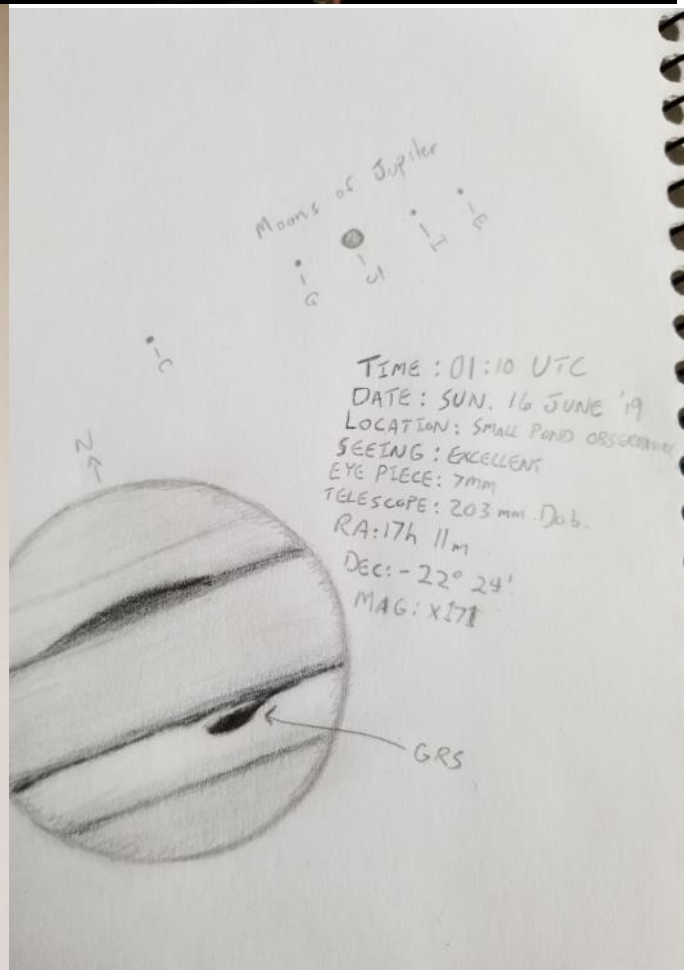 Moons of Jupiter
E
I
J
G
C
TIME : 01:10 UTC
DATE : SUN. 16 JUNE '19
LOCATION : SMALL POND OBSERVATORY
SEEING : EXCELLENT
EYE PIECE: 7mm
TELESCOPE : 203 mm Dob.
RA:17h 11m
DEC: -22° 24'
MAG: X171
N
GRS